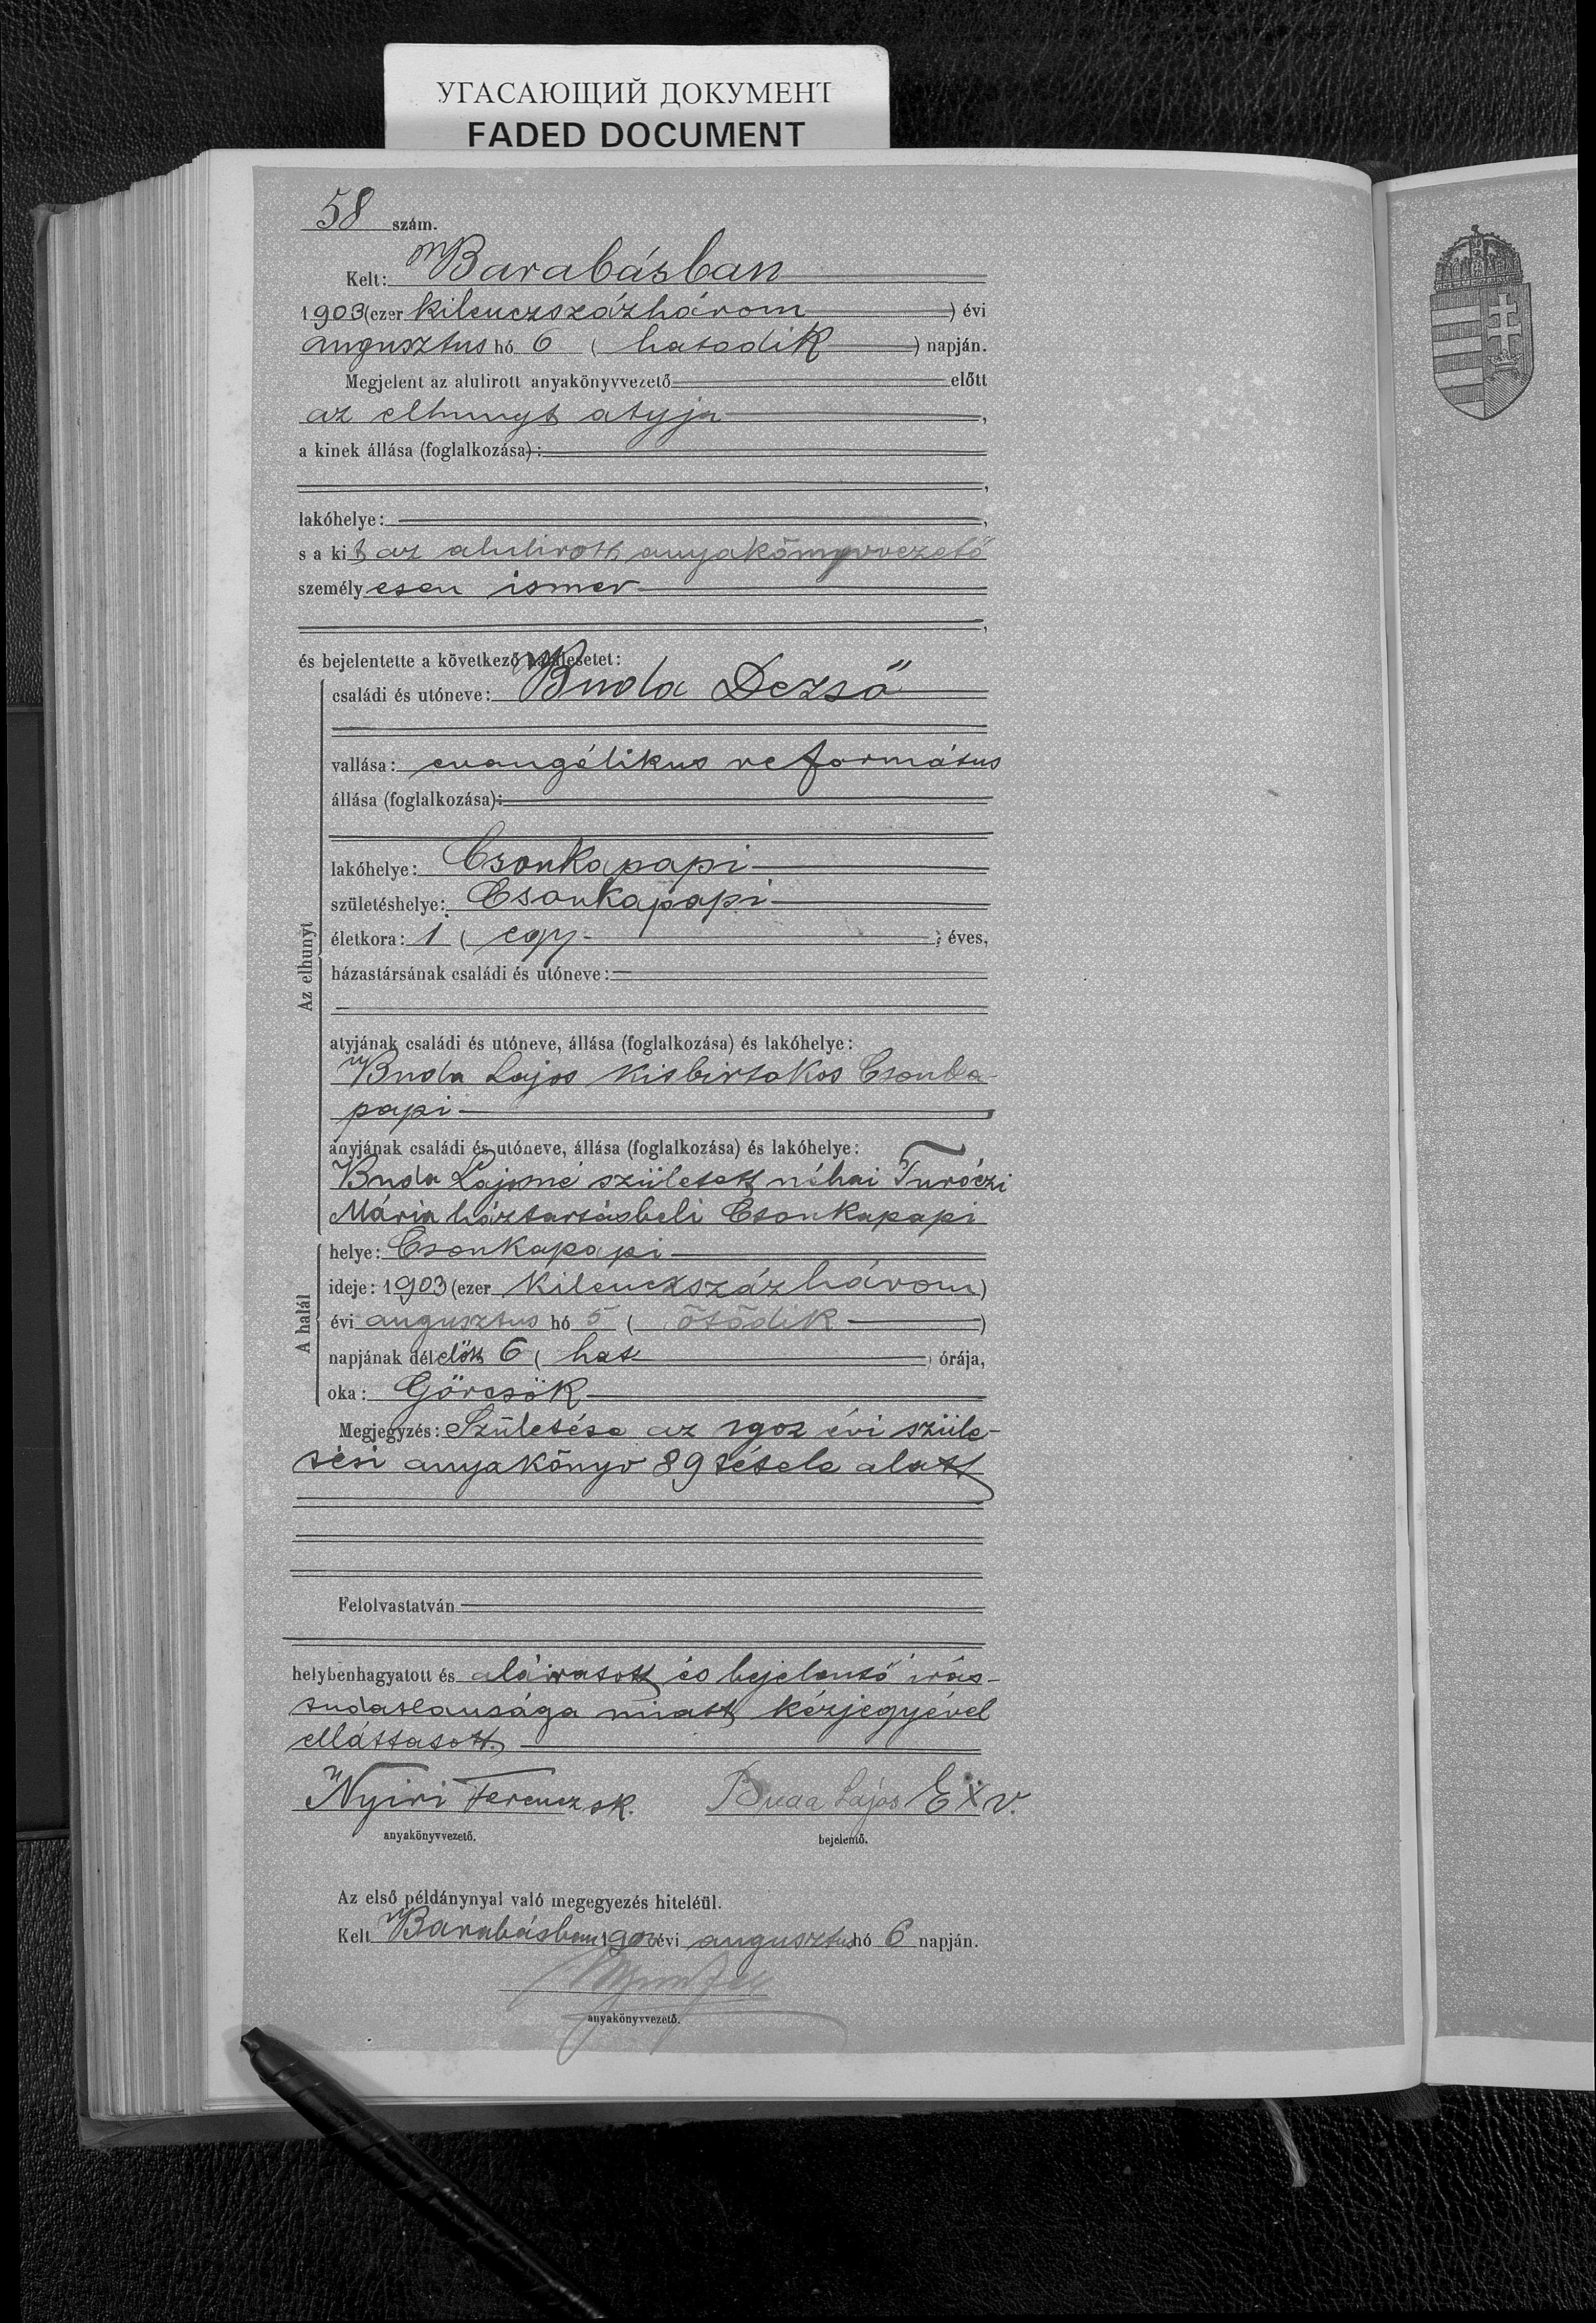 УГАСАЮЩИЙ ДОКУМЕНТ
FADED DOCUMENT
58 szám.
Kelt: Barabásban
1903 (ezer kilenczszázhárom) évi
augusztus hó 6 (hatodik) napján.
Megjelent az alulirott anyakönyvvezető előtt
az elhunyt atyja,
a kinek állása (foglalkozása):
,
lakóhelye:,
s a kit az alulirott anyakönyvvezető
személyesen ismer
,
és bejelentette a következő halálesetet:
Az elhunyt
családi és utóneve: Buda Dezső
vallása: evangélikus református
állása (foglalkozása):
lakóhelye: Csonkapapi
születéshelye: Csonkapapi
életkora: 1 (egy) éves,
házastársának családi és utóneve:
atyjának családi és utóneve, állása (foglalkozása) és lakóhelye:
Buda Lajos kisbirtokos Csonka-
papi
anyjának családi és utóneve, állása (foglalkozása) és lakóhelye:
Buda Lajosné született néhai Turóczi
Mária háztartásbeli Csonkapapi
A halál
helye: Csonkapapi
ideje: 1903 (ezer kilenczszázhárom)
évi augusztus hó 5 (ötödik)
napjának délelőtt 6 (hat) órája,
oka: Görcsök
Megjegyzés: Születése az 1902 évi szüle-
tési anyakönyv 89 tétele alatt
Felolvastatván
helybenhagyatott és aláiratott és bejelentő irás-
tudatlansága miatt kézjegyével
elláttatott.
Nyiri Ferencz sk. Buda Lajos E X V.
anyakönyvvezető. bejelentő.
Az első példánynyal való megegyezés hiteléül.
Kelt Barabásban 1903 évi augusztus hó 6 napján.
anyakönyvvezető.